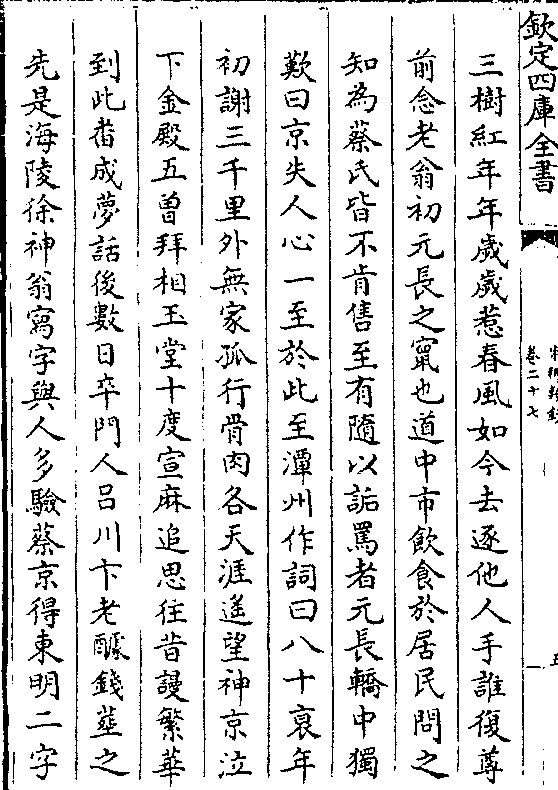 欽定四庫全書
卷二十七
三樹紅年年歲歲惹春風如今去逐他人手誰復尊
前念老翁初元長之竄也道中市飲食於居民問之
知為蔡氏皆不肯售至有隨以詬罵者元長轎中獨
歎曰京失人心一至於此至潭州作詞曰八十衰年
初謝三千里外無家孤行骨肉各天涯遙望神京泣
下金殿五曽拜相玉堂十度宣麻追思往昔謾繁華
到此畨成夢話後數日卒門人吕川卞老醵錢𦵏之
先是海陵徐神翁寫字與人多驗蔡京得東明二字